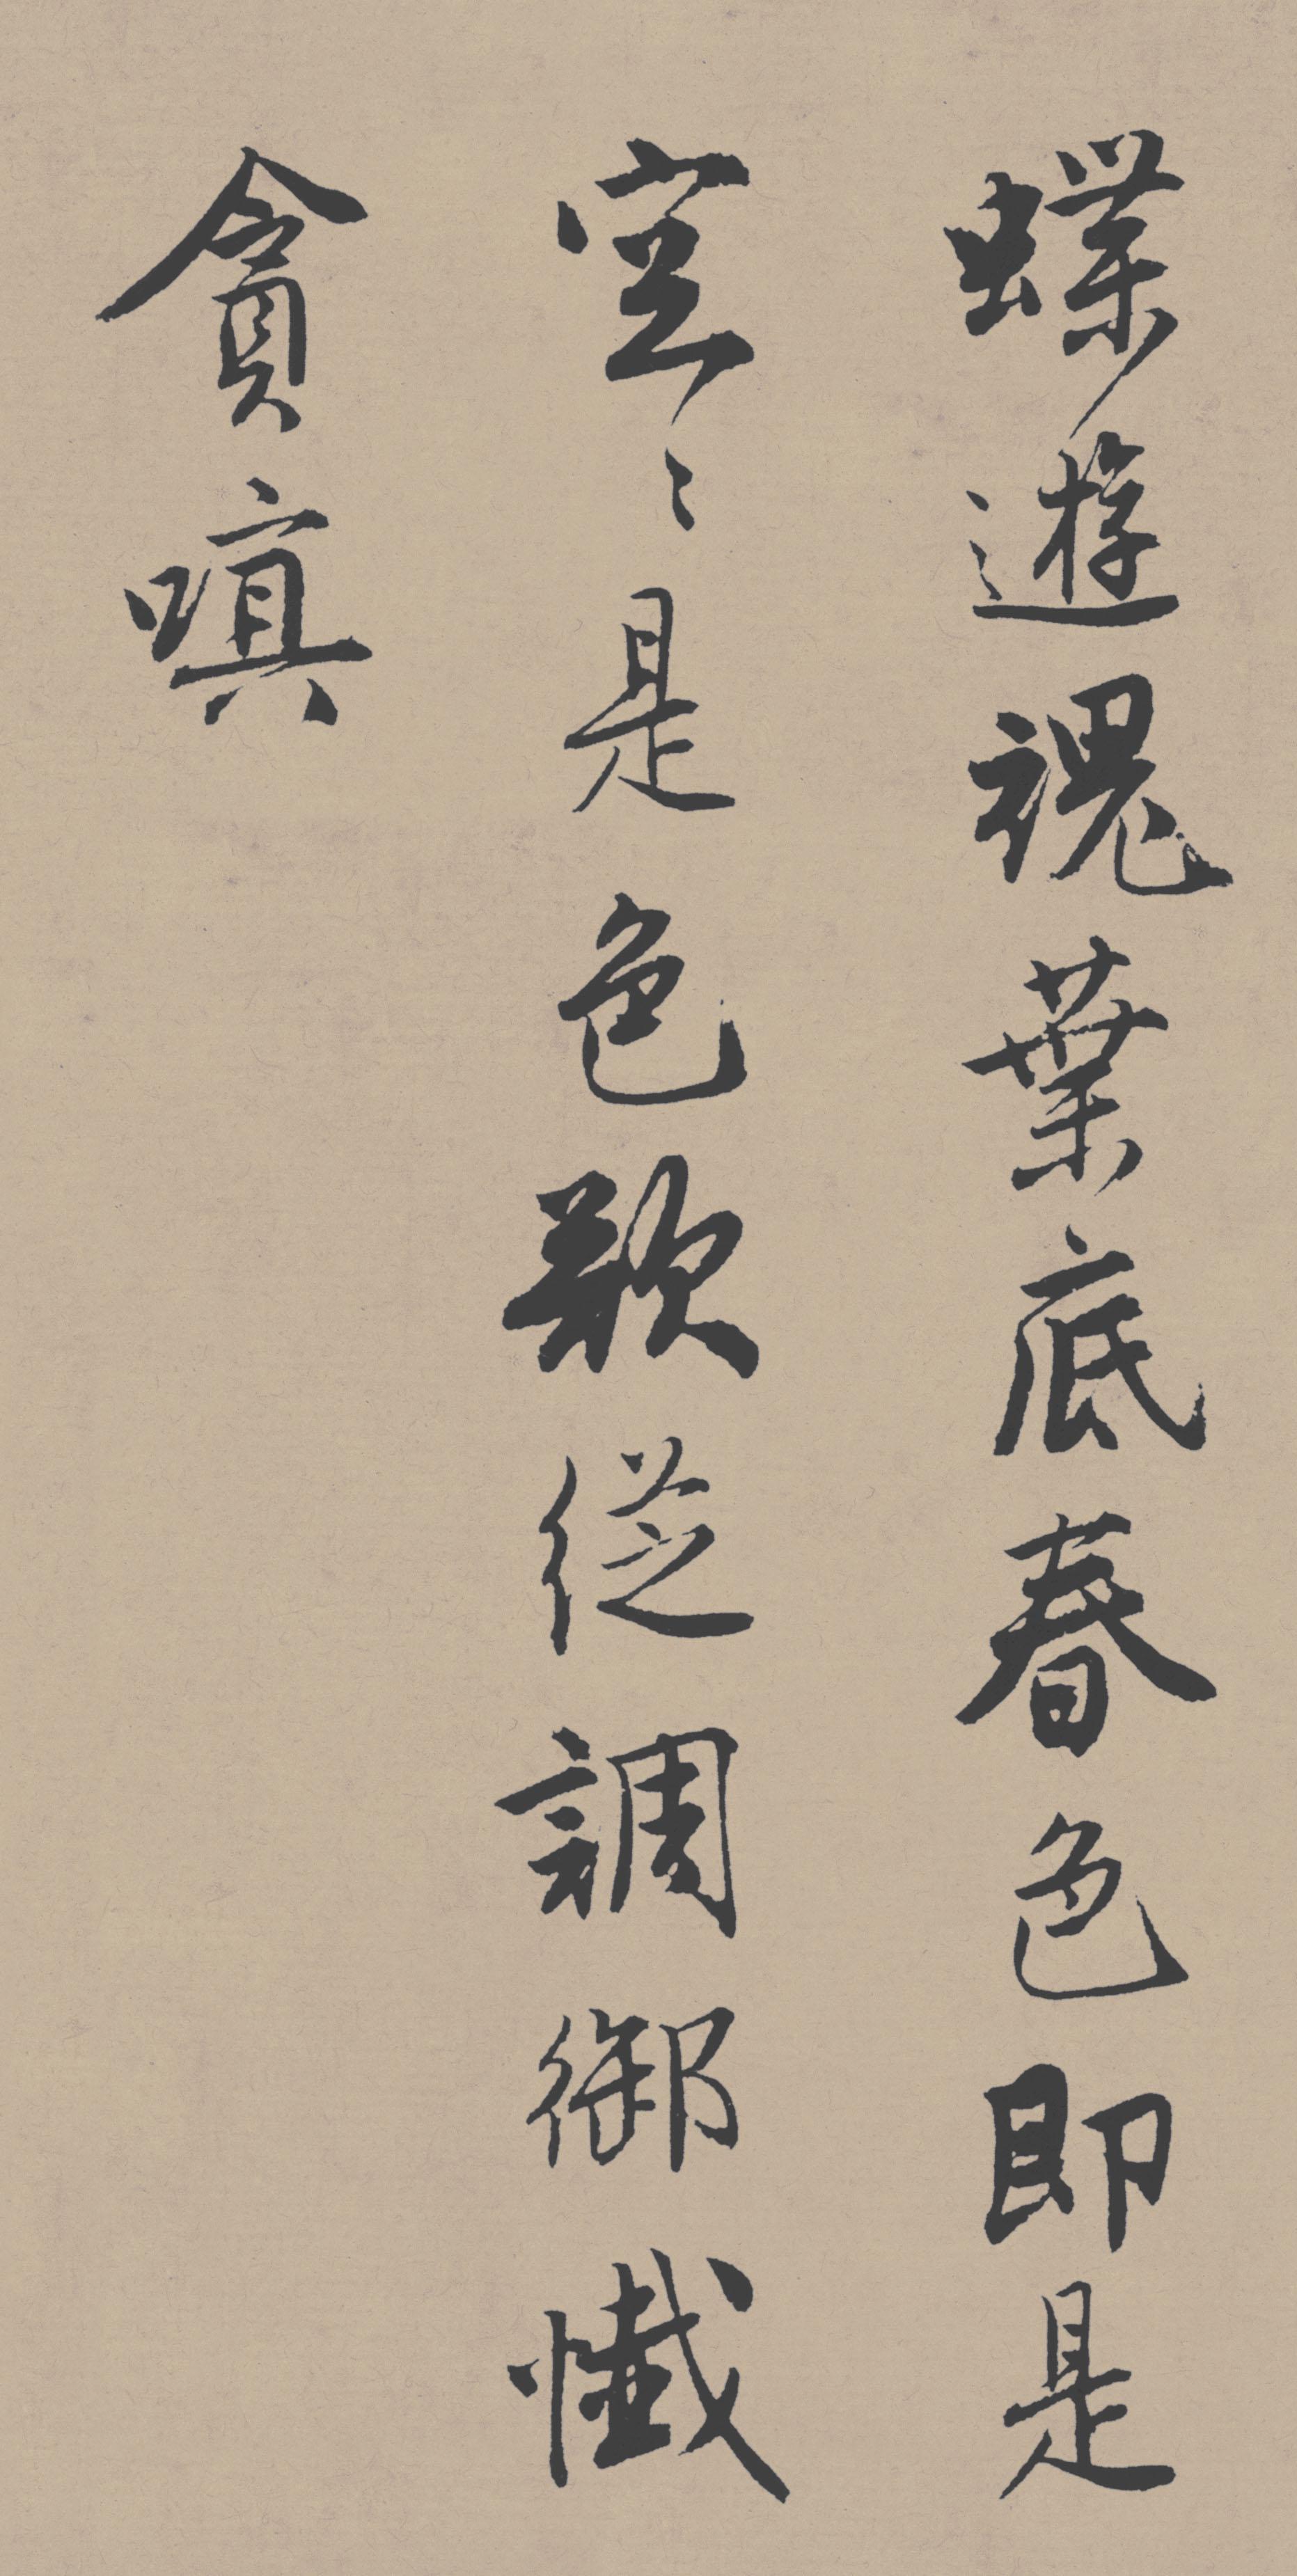 蝶遊魂葉底春色即是
空〻是色歌從調御懺
貪嗔